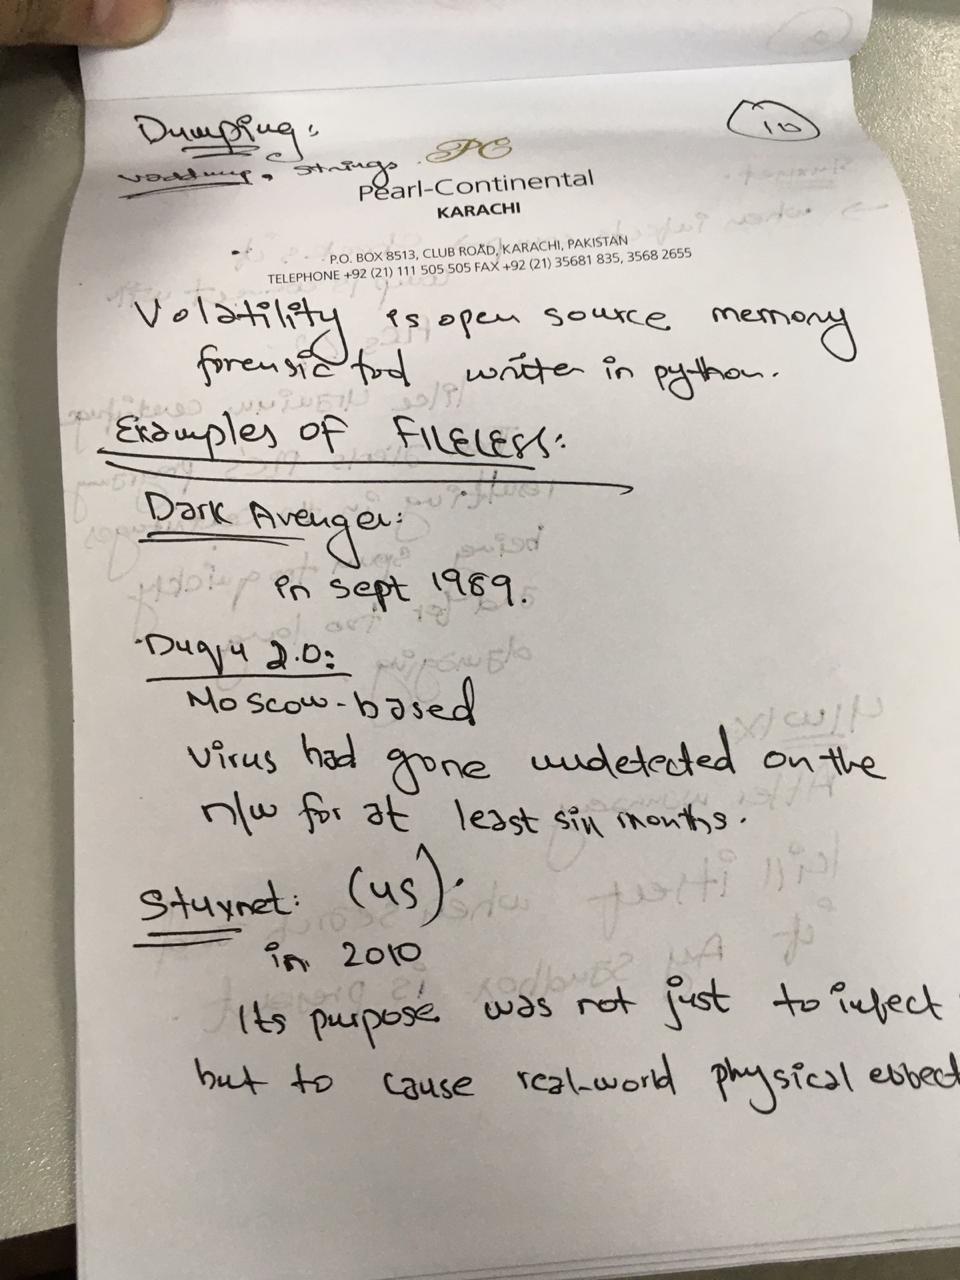 Dumping:
10
vaddump, strings.
PC
Pearl-Continental
KARACHI
P.O. BOX 8513, CLUB ROAD, KARACHI, PAKISTAN
TELEPHONE +92 (21) 111 505 505 FAX +92 (21) 35681 835, 3568 2655
Volatility is open source memory
forensic tool written in python.
Examples of FILELESS:
Dark Avenger:
in sept 1989.
Duqu 2.0:
Moscow-based
virus had gone undetected on the
n/w for at least six months.
Stuxnet: (US).
in 2010
Its purpose was not just to infect
but to cause real-world physical effect